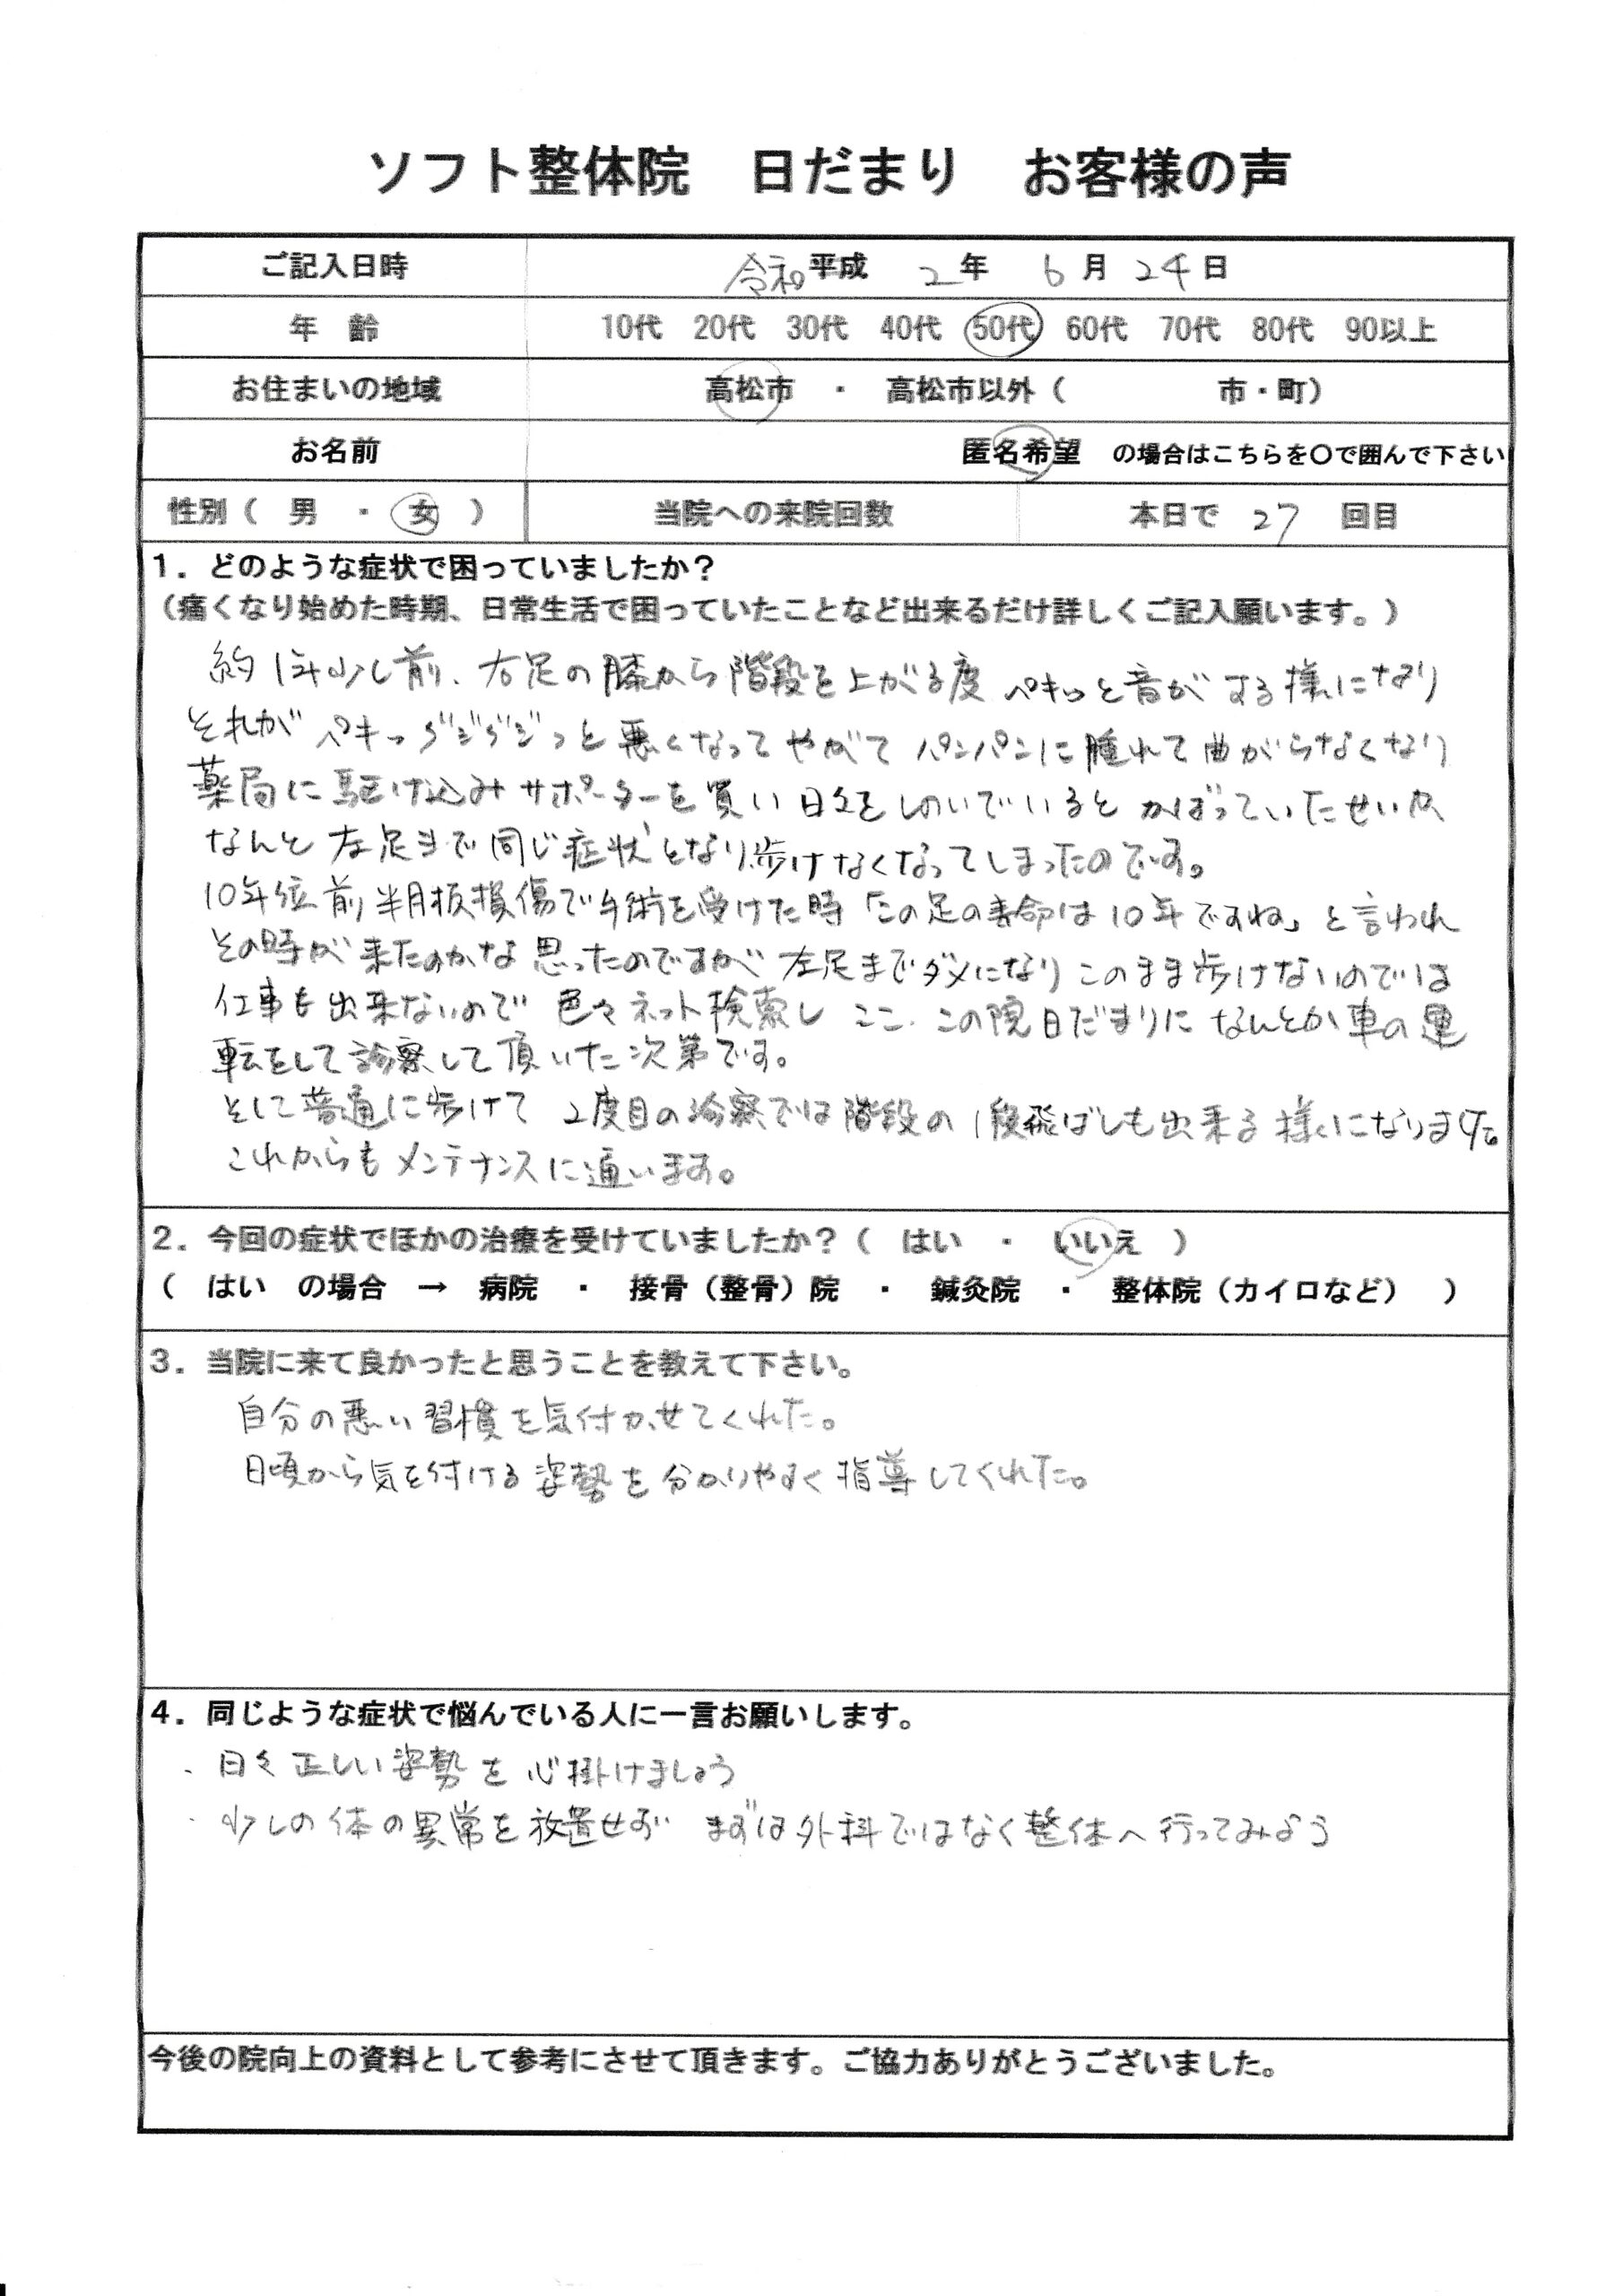 ソフト整体院 日だまり お客様の声
ご記入日時 令和 平成 2年 6月 24日
年 齢 10代 20代 30代 40代 50代 60代 70代 80代 90以上
お住まいの地域 高松市 ・ 高松市以外（ 市・町）
お名前 匿名希望 の場合はこちらを〇で囲んで下さい
性別（ 男 ・ 女 ） 当院への来院回数 本日で 27 回目
1．どのような症状で困っていましたか？
（痛くなり始めた時期、日常生活で困っていたことなど出来るだけ詳しくご記入願います。）
約1年少し前、右足の膝から階段を上がる度 ペキッと音がする様になり
それが ペキっ ジジジジっと悪くなって やがて パンパンに腫れて曲がらなくなり
薬局に駆け込みサポーターを買い日々をしのいでいると かばっていたせいか
なんと 左足まで同じ症状となり歩けなくなってしまったのです。
10年位前 半月板損傷で手術を受けた時「この足の寿命は10年ですね」と言われ
その時が来たのかな 思ったのですが 左足までダメになり このまま歩けないのでは
仕事も出来ないので 色々ネット検索し ここ、この院日だまりに なんとか車の運
転をして診察して頂いた次第です。
そして普通に歩けて 2度目の診察では階段の1段飛ばしも出来る様になります。
これからもメンテナンスに通います。
2．今回の症状でほかの治療を受けていましたか？（ はい ・ いいえ ）
（ はい の場合 → 病院 ・ 接骨（整骨）院 ・ 鍼灸院 ・ 整体院（カイロなど） ）
3．当院に来て良かったと思うことを教えて下さい。
自分の悪い習慣を気付かせてくれた。
日頃から気を付ける姿勢を分かりやすく指導してくれた。
4．同じような症状で悩んでいる人に一言お願いします。
・日々正しい姿勢を心掛けましょう
・少しの体の異常を放置せず まずは外科ではなく整体へ行ってみよう
今後の院向上の資料として参考にさせて頂きます。ご協力ありがとうございました。